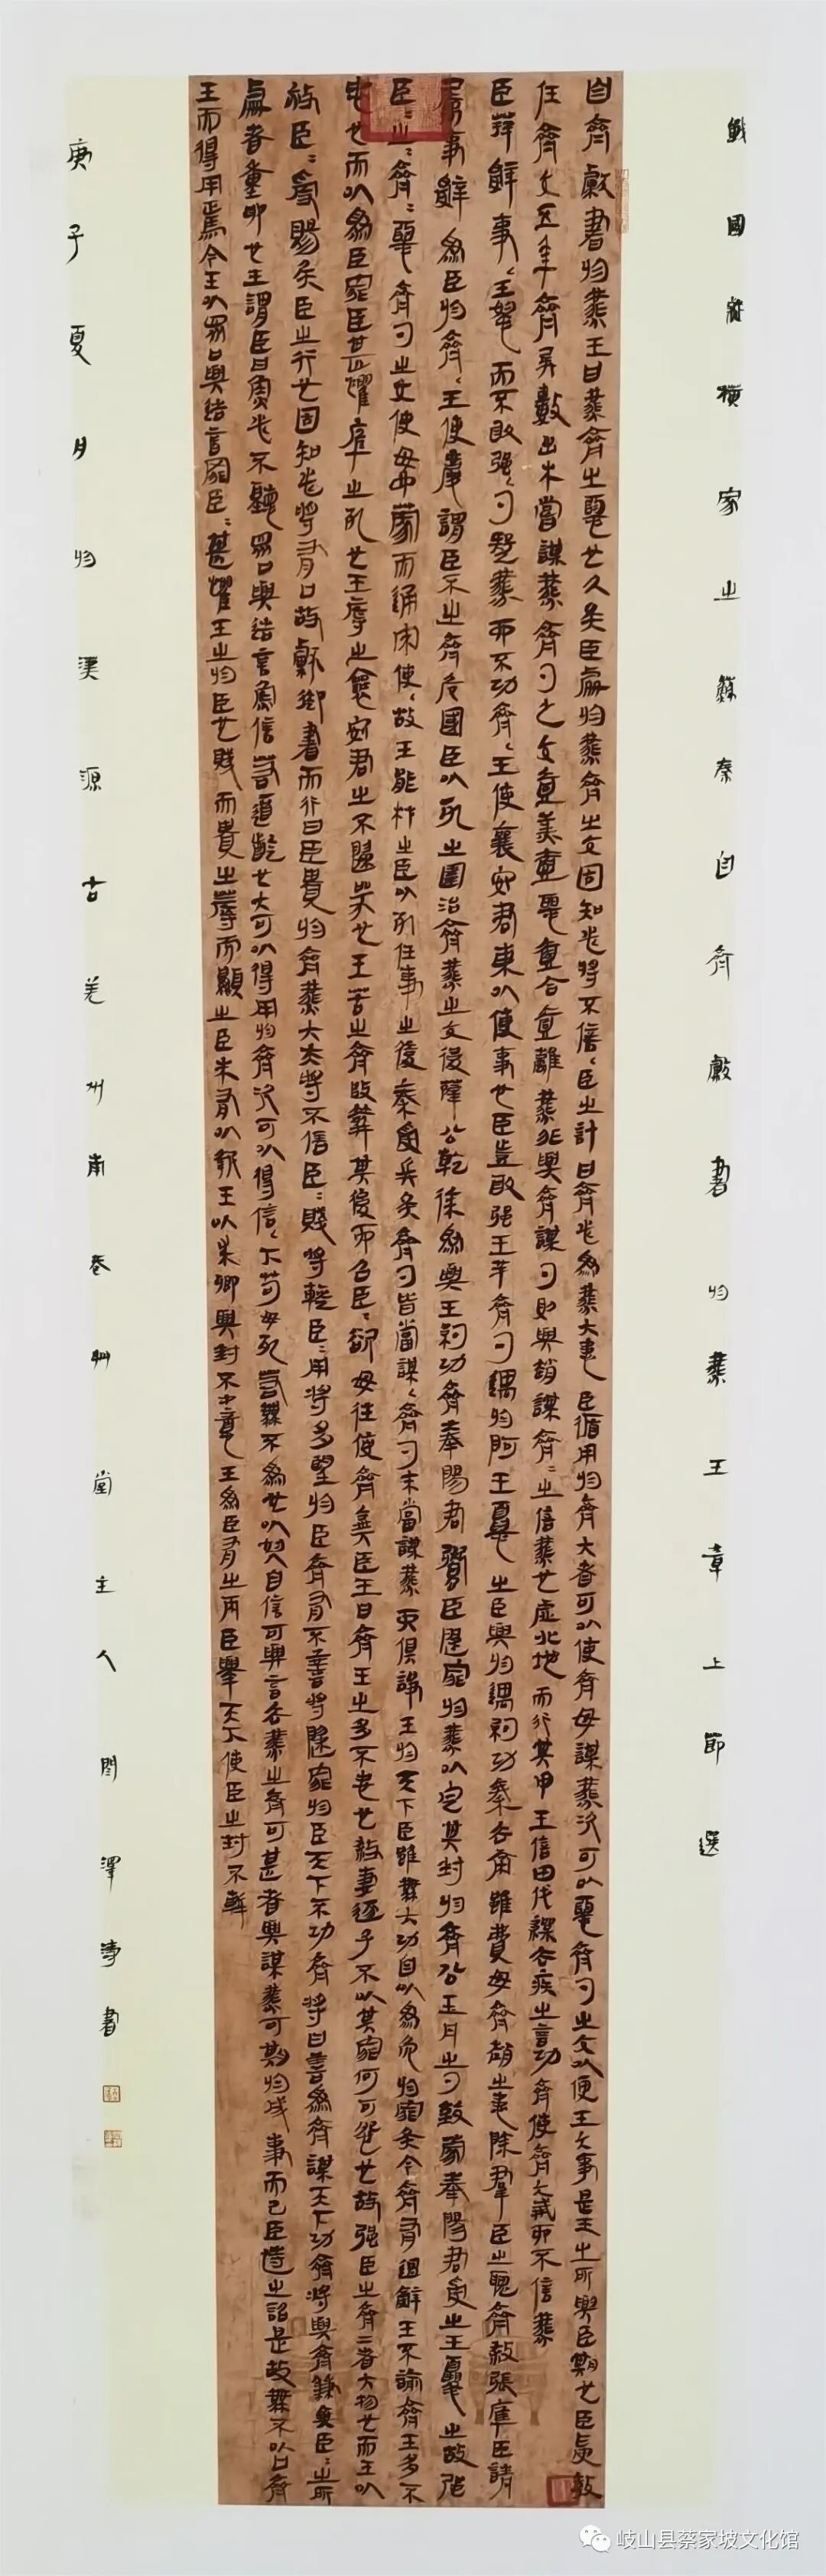 戰國縱橫家之蘇秦自齊獻書於燕王章上節選
自齊獻書於燕王曰燕齊之惡也久矣臣處於燕齊之交固知必將不信〻臣之計曰齊必為燕大患臣循用於齊大者可以使齊毋謀燕次可以惡齊勺之交以便王之大事是王之所與臣期也臣受教
任齊交五年齊兵數出未嘗謀燕齊勺之交壹美壹惡壹合壹離燕非與齊謀勺則與趙謀齊〻之信燕也虛北地而行其甲王信田代繰去疾之言功齊使齊大戒而不信燕
臣辭事〻王怒而不敢强〻勺疑燕而不功齊〻王使襄安君東以便事也臣豈敢强王齊勺遇於阿王憂之臣與於遇約功秦去帝雖費毋齊趙之患除群臣之聰齊殺張庫臣請
屬事辭為臣於齊〻王使慶謂臣不之齊危國臣以死之圍治齊燕之交後薛公乾徐為與王約功齊奉陽君鬻臣歸罪於燕以定其封於齊公玉丹之勺致蒙奉陽君受之王憂之故强
臣〻之〻齊〻惡齊勺之交使毋予蒙而通宋使〻故王能材之臣以死任事之後秦受兵矣齊勺皆嘗謀〻齊勺未嘗謀燕而俱諍王於天下臣雖無大功自以為免於罪矣今齊有過辭王不諭齊王多不
忠也而以為臣罪臣甚懼庫之死也王辱之襄安君之不歸哭也王苦之齊改葬其後而召臣〻欲毋往使齊棄臣王曰齊王之多不忠也殺妻逐子不以其罪何可怨也故强臣之齊二者大物也而王以
赦臣〻受賜矣臣之行也固知必將有口故獻御書而行曰臣貴於齊燕大夫將不信臣〻賤將輕臣〻用將多望於臣齊有不善將歸罪於臣天下不功齊將曰善為齊謀天下功齊將與齊兼棄臣〻之所
處者重卵也王謂臣曰魚必不聽眾口與造言魚信若迺齕也大可以得用於齊次可以得信〻下苟毋死若無不為也以奴自信可與言去燕之齊可甚者與謀燕可期於成事而已臣恃之詔是故無不以口齊
王而得用焉今王以眾口與造言罪臣〻甚懼王之於臣也賤而貴之蓐而顯之臣未有以報王以求卿與封不中意王為臣有之兩臣舉天下使臣之封不慚
庚子夏月於漢源古羌州南巷艸堂主人閆澤濤書
岐山县蔡家坡文化馆